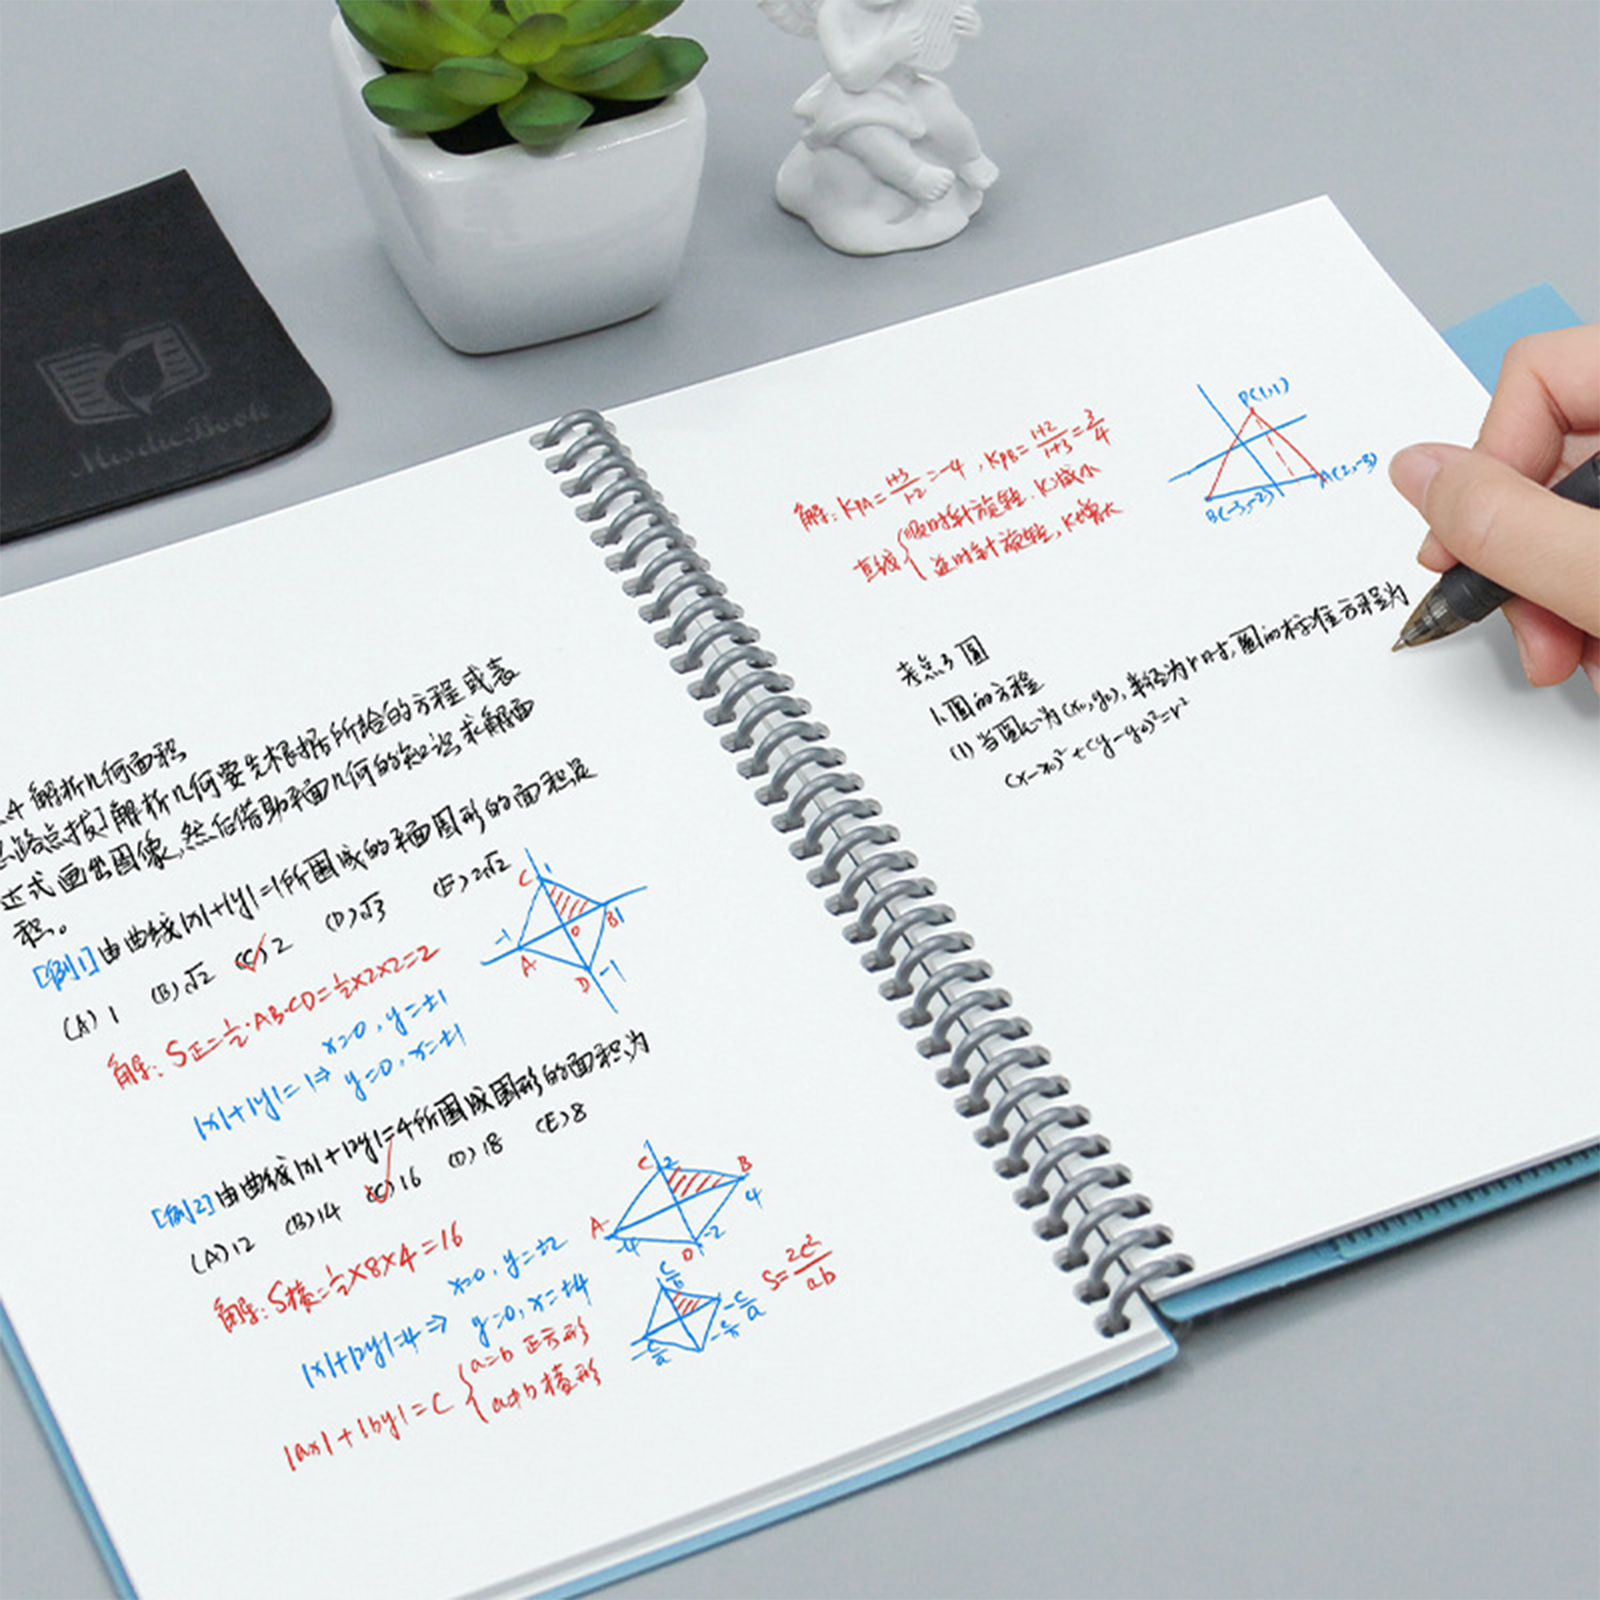 MisdieBook
.4 解析几何面积
思路点拨]解析几何要先根据所给的方程或表
达式画出图像,然后借助平面几何的知识求解面
积。
[例1]由曲线|x|+|y|=1所围成的平面图形的面积是
(A) 1 (B)√2 (C)2 (D)√3 (E)2√2
解:S正=½·AB·CD=½×2×2=2
|x|+|y|=1⇒ x=0,y=±1
y=0,x=±1
C 1
-1 0 B 1
A
D -1
[例2]由曲线|x|+|2y|=4所围成图形的面积为
(A)12 (B)14 (C)16 (D)18 (E)8
解:S棱=½×8×4=16
|x|+|2y|=4⇒ x=0,y=±2
y=0,x=±4
|ax|+|by|=C { a=b 正方形
a≠b 棱形
C 2 B
4
A -4 D -2
C/b
-C/a -C/b C/a
S=2c²/ab
解:KPA=1+3/1-2=-4,KPB=1+2/1+3=3/4
直线{顺时针旋转,K减小
逆时针旋转,K增大
P(1,1)
A(2,-3)
B(-3,-2)
考点3 圆
1.圆的方程
(1) 当圆心为(x₀,y₀),半径为r时,圆的标准方程为
(x-x₀)²+(y-y₀)²=r²